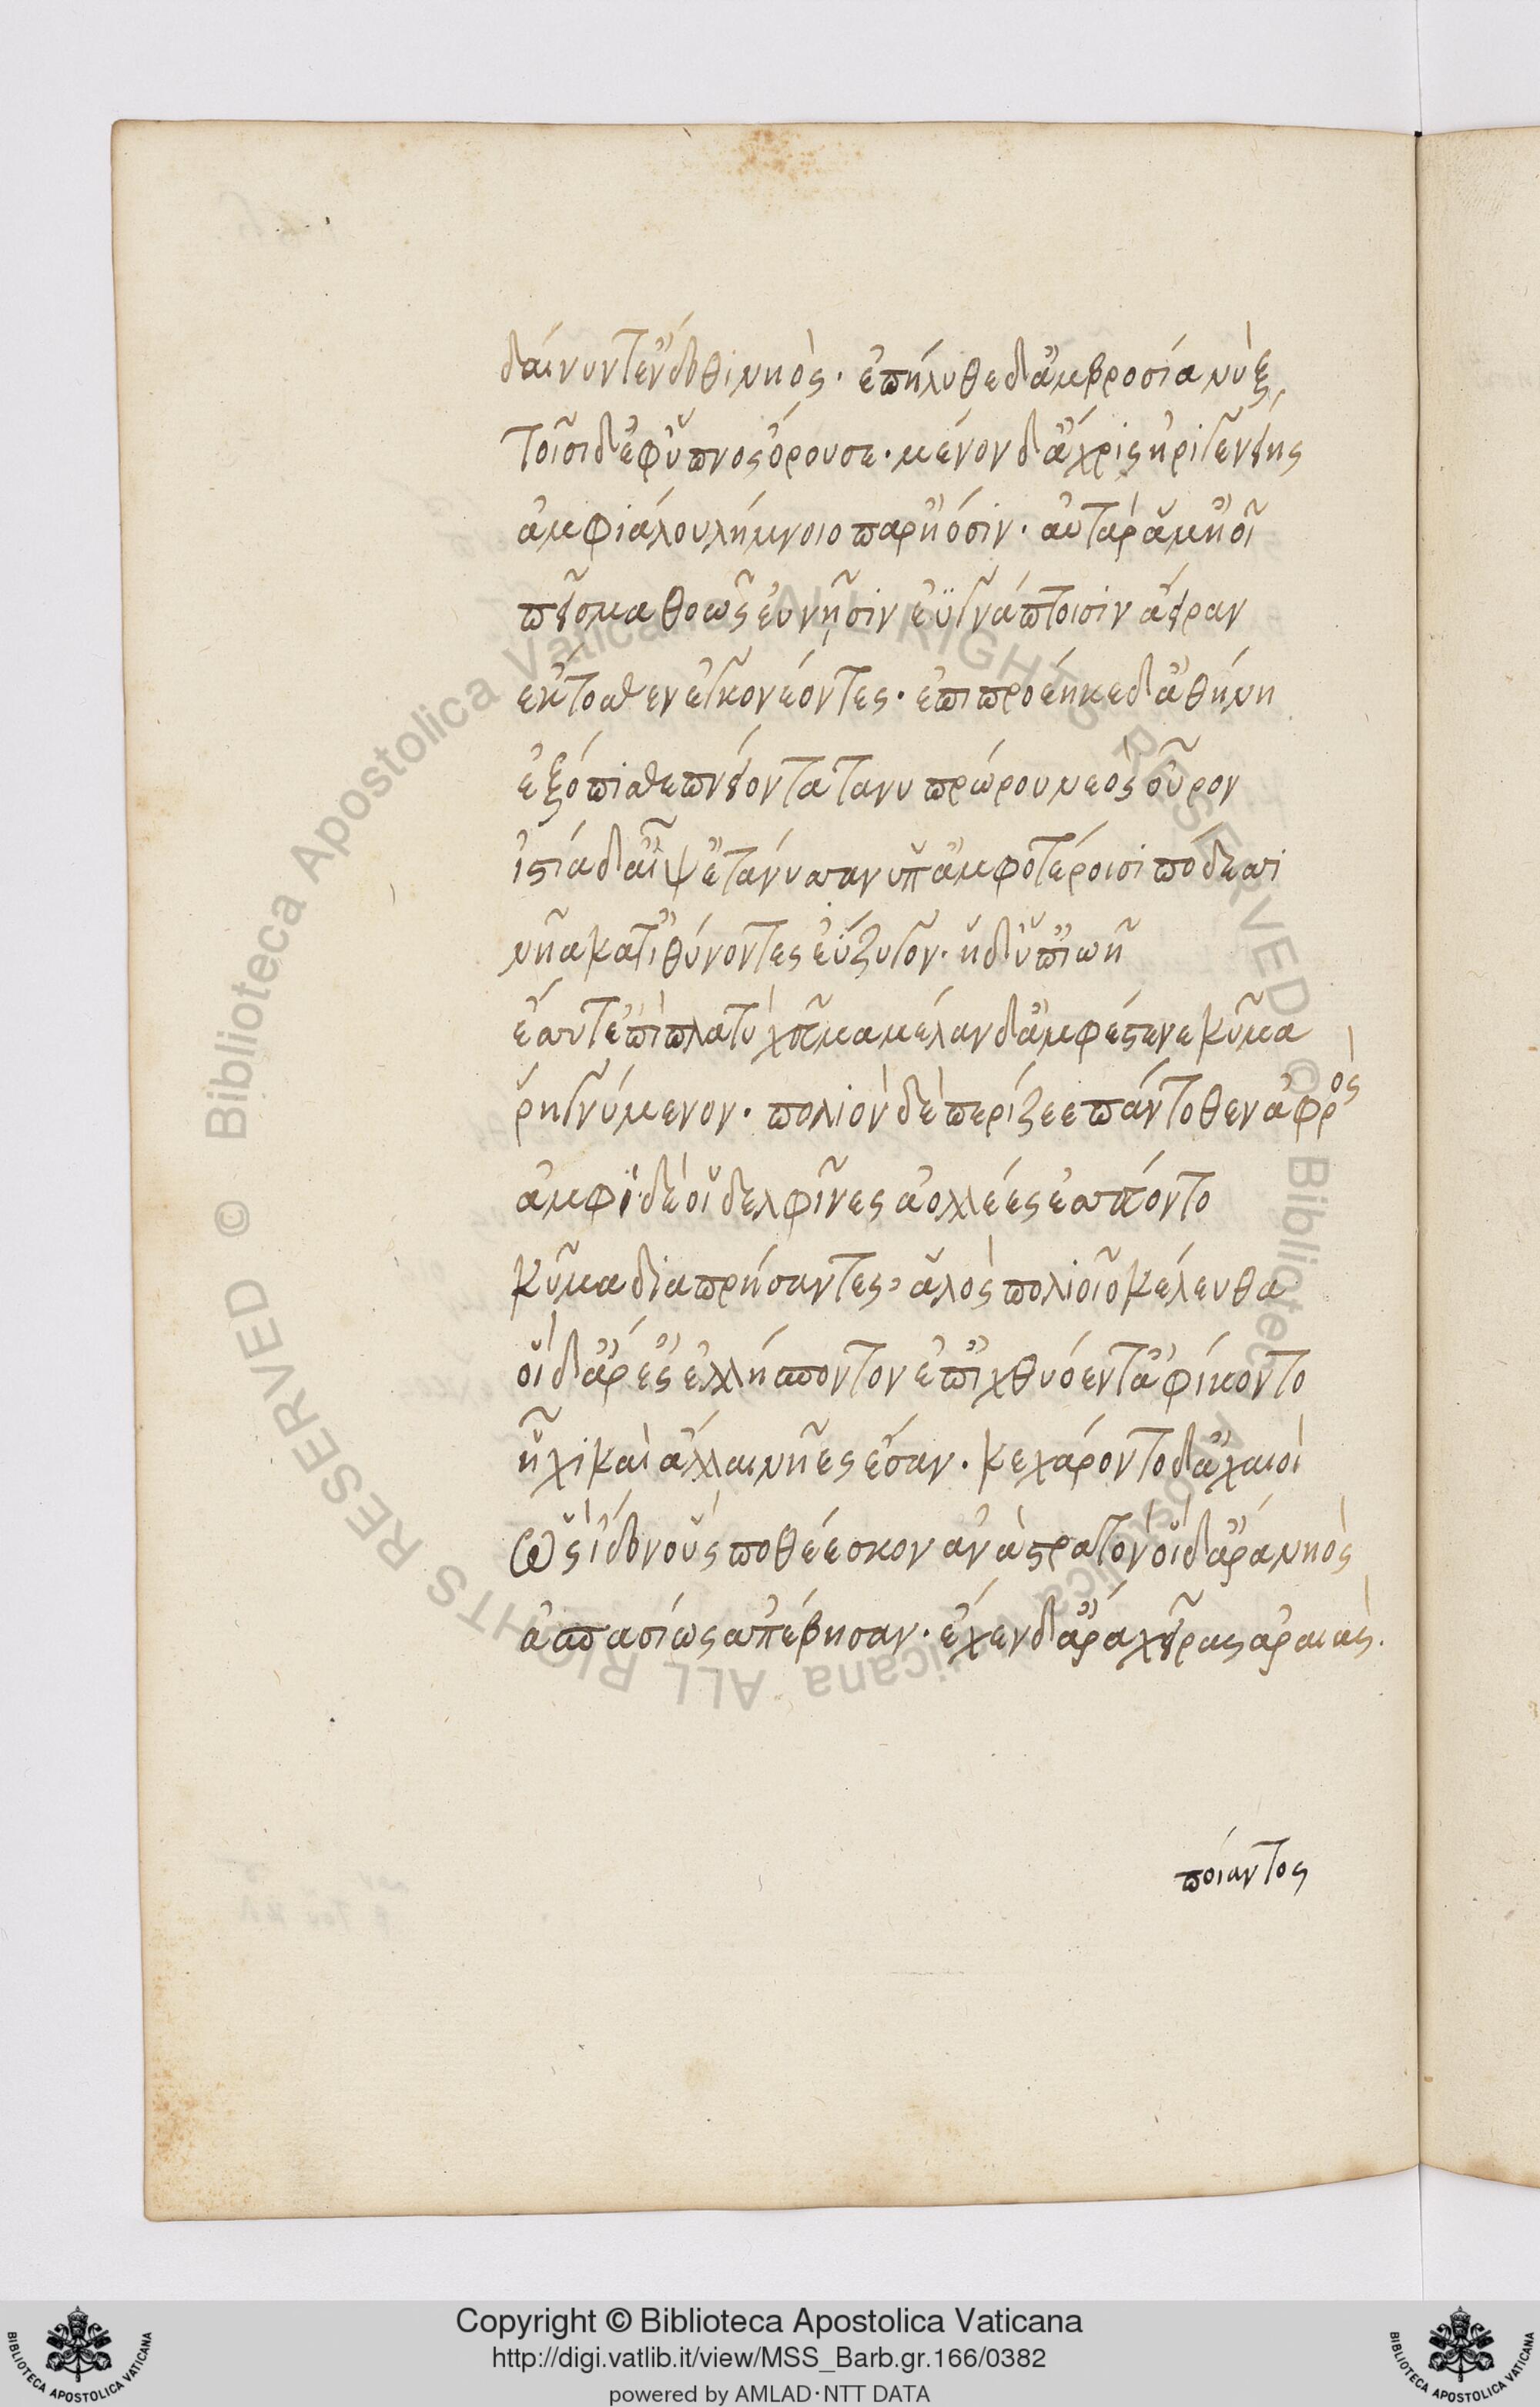 δαίνυντ' ἔνδοθι νηός. ἐπήλυθε δ' ἀμβροσία νύξ,
τοῖσι δ' ἐφ' ὕπνος ὄρουσε. μένον δ' ἄχρις ἠριγενείης
ἀμφιάλου λήμνοιο παρ' ἠόσιν. αὐτὰρ ἅμ' ἠοῖ
πείσμα θοῶς εὐνῇσιν ἐϋγνάπτοισιν ἄειραν
ἐκτόσθεν ἐγκονέοντες. ἐπιπροέηκε δ' ἀθήνη
ἐξόπισθε πνείοντα τανυπρώρου νεὸς οὖρον
ἱστία δ' αἶψ' ἐτάνυσαν ὑπ' ἀμφοτέροισι πόδεσι
νῆα κατιθύνοντες εὔζυγον. ἡ δ' ὑπ' ἰωῇ
ἔσσυτ' ἐπὶ πλατὺ χεῦμα μέλαν δ' ἀμφέστενε κῦμα
ῥηγνύμενον. πολιὸν δὲ περίζεε πάντοθεν ἀφρὸς
ἀμφὶ δὲ οἱ δελφῖνες ἀολλέες ἐσπέοντο
κῦμα διαπρήσαντες, ἁλὸς πολιοῖο κέλευθα
οἱ δ' ἄρ' ἐς ἑλλήσποντον ἐπ' ἰχθυόεντ' ἀφίκοντο
ἧχι καὶ ἄλλαι νῆες ἔσαν. κεχάροντο δ' ἀχαιοὶ
ὡς ἴδον οὓς ποθέεσκον ἀνὰ στρατὸν οἱ δ' ἄρα νηὸς
ἀσπασίως ἀπέβησαν. ἔχεν δ' ἄρα χεῖρας ἀραιὰς.
ποίαντος
Copyright © Biblioteca Apostolica Vaticana
http://digi.vatlib.it/view/MSS_Barb.gr.166/0382
powered by AMLAD·NTT DATA